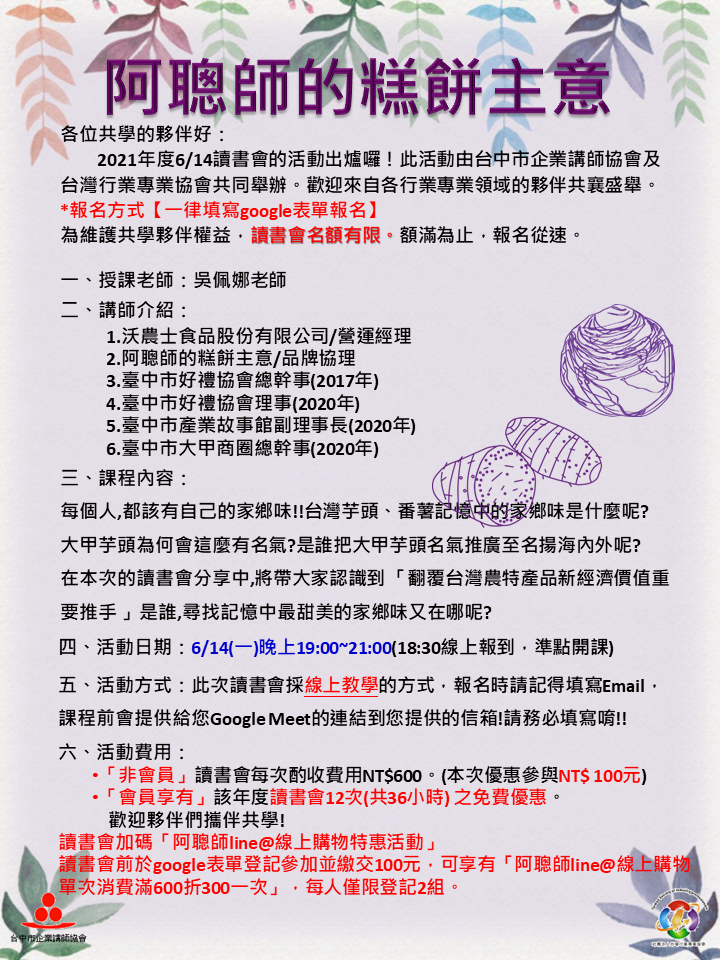 阿聰師的糕餅主意
各位共學的夥伴好：
2021年度6/14讀書會的活動出爐囉！此活動由台中市企業講師協會及
台灣行業專業協會共同舉辦。歡迎來自各行業專業領域的夥伴共襄盛舉。
*報名方式【一律填寫google表單報名】
為維護共學夥伴權益，讀書會名額有限。額滿為止，報名從速。
一、授課老師：吳佩娜老師
二、講師介紹：
1.沃農士食品股份有限公司/營運經理
2.阿聰師的糕餅主意/品牌協理
3.臺中市好禮協會總幹事(2017年)
4.臺中市好禮協會理事(2020年)
5.臺中市產業故事館副理事長(2020年)
6.臺中市大甲商圈總幹事(2020年)
三、課程內容：
每個人,都該有自己的家鄉味!!台灣芋頭、番薯記憶中的家鄉味是什麼呢?
大甲芋頭為何會這麼有名氣?是誰把大甲芋頭名氣推廣至名揚海內外呢?
在本次的讀書會分享中,將帶大家認識到「翻覆台灣農特產品新經濟價值重
要推手」是誰,尋找記憶中最甜美的家鄉味又在哪呢?
四、活動日期：6/14(一)晚上19:00~21:00(18:30線上報到，準點開課)
五、活動方式：此次讀書會採線上教學的方式，報名時請記得填寫Email，
課程前會提供給您Google Meet的連結到您提供的信箱!請務必填寫唷!!
六、活動費用：
•「非會員」讀書會每次酌收費用NT$600。(本次優惠參與NT$ 100元)
•「會員享有」該年度讀書會12次(共36小時) 之免費優惠。
歡迎夥伴們攜伴共學!
讀書會加碼「阿聰師line@線上購物特惠活動」
讀書會前於google表單登記參加並繳交100元，可享有「阿聰師line@線上購物
單次消費滿600折300一次」，每人僅限登記2組。
台中市企業講師協會